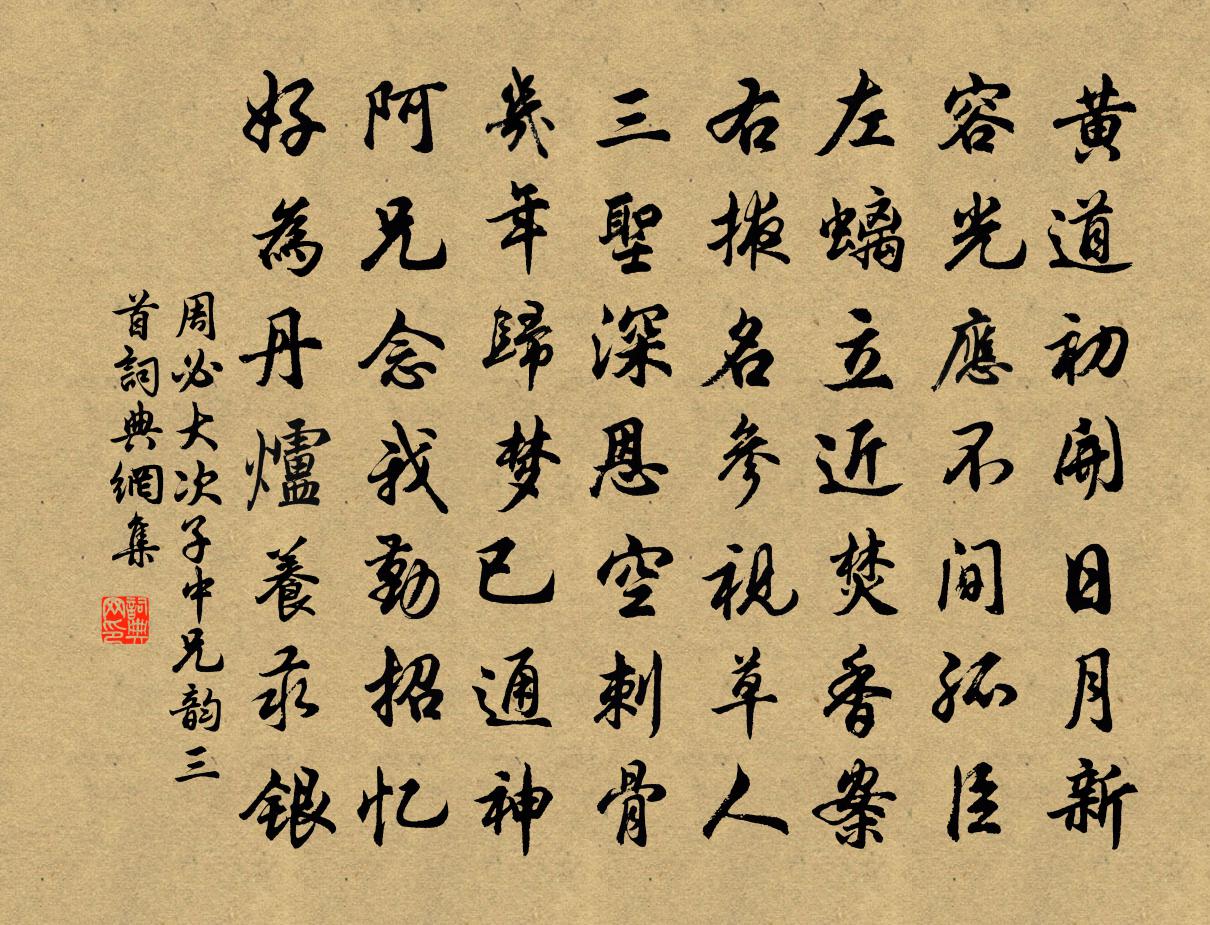 黄道初開日月新
容光應不間孤臣
左螭立近焚香案
右掖名參視草人
三聖深恩空刺骨
幾年歸梦已通神
阿兄念我勤招忆
好為丹爐養汞銀
周必大次子中兄韵三
首詞典網集
詞典网印